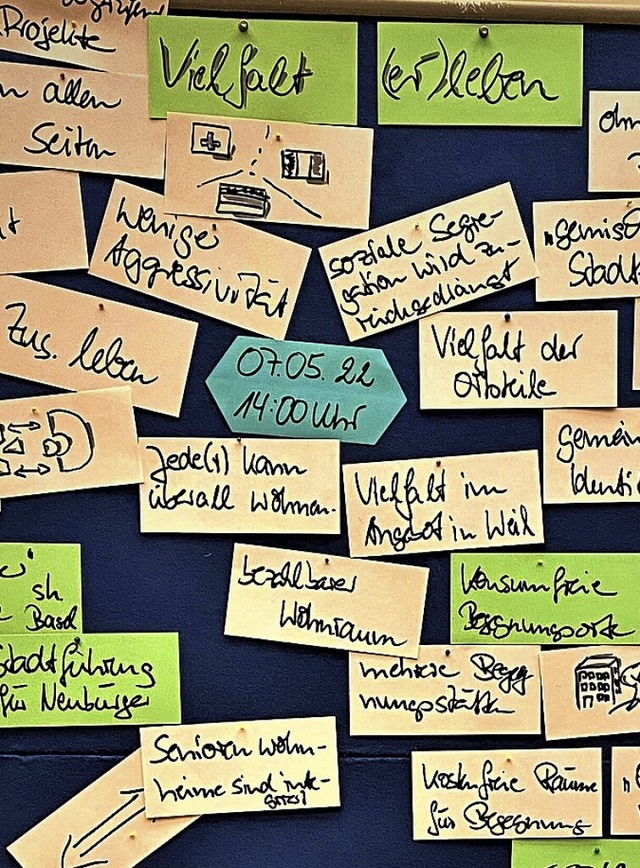 Projekte
Vielfalt
(er)leben
n allen
Seiten
ohn
wenige
Aggressivität
soziale Segre-
gation wird zu-
rückgedrängt
"gemis
Stadt
Zus. leben
07.05.22
14:00 Uhr
Vielfalt der
Ortsteile
gemein
Identi
Jede(r) kann
überall wohnen.
Vielfalt im
Angebot in Weil
bezahlbarer
Wohnraum
konsumfreie
Begegnungsorte
sh
Basel
Stadtführung
für Neubürger
mehrere Begeg
nungsstätten
Senioren wohn-
heime sind inte-
griert
kostenfreie Räume
für Begegnung